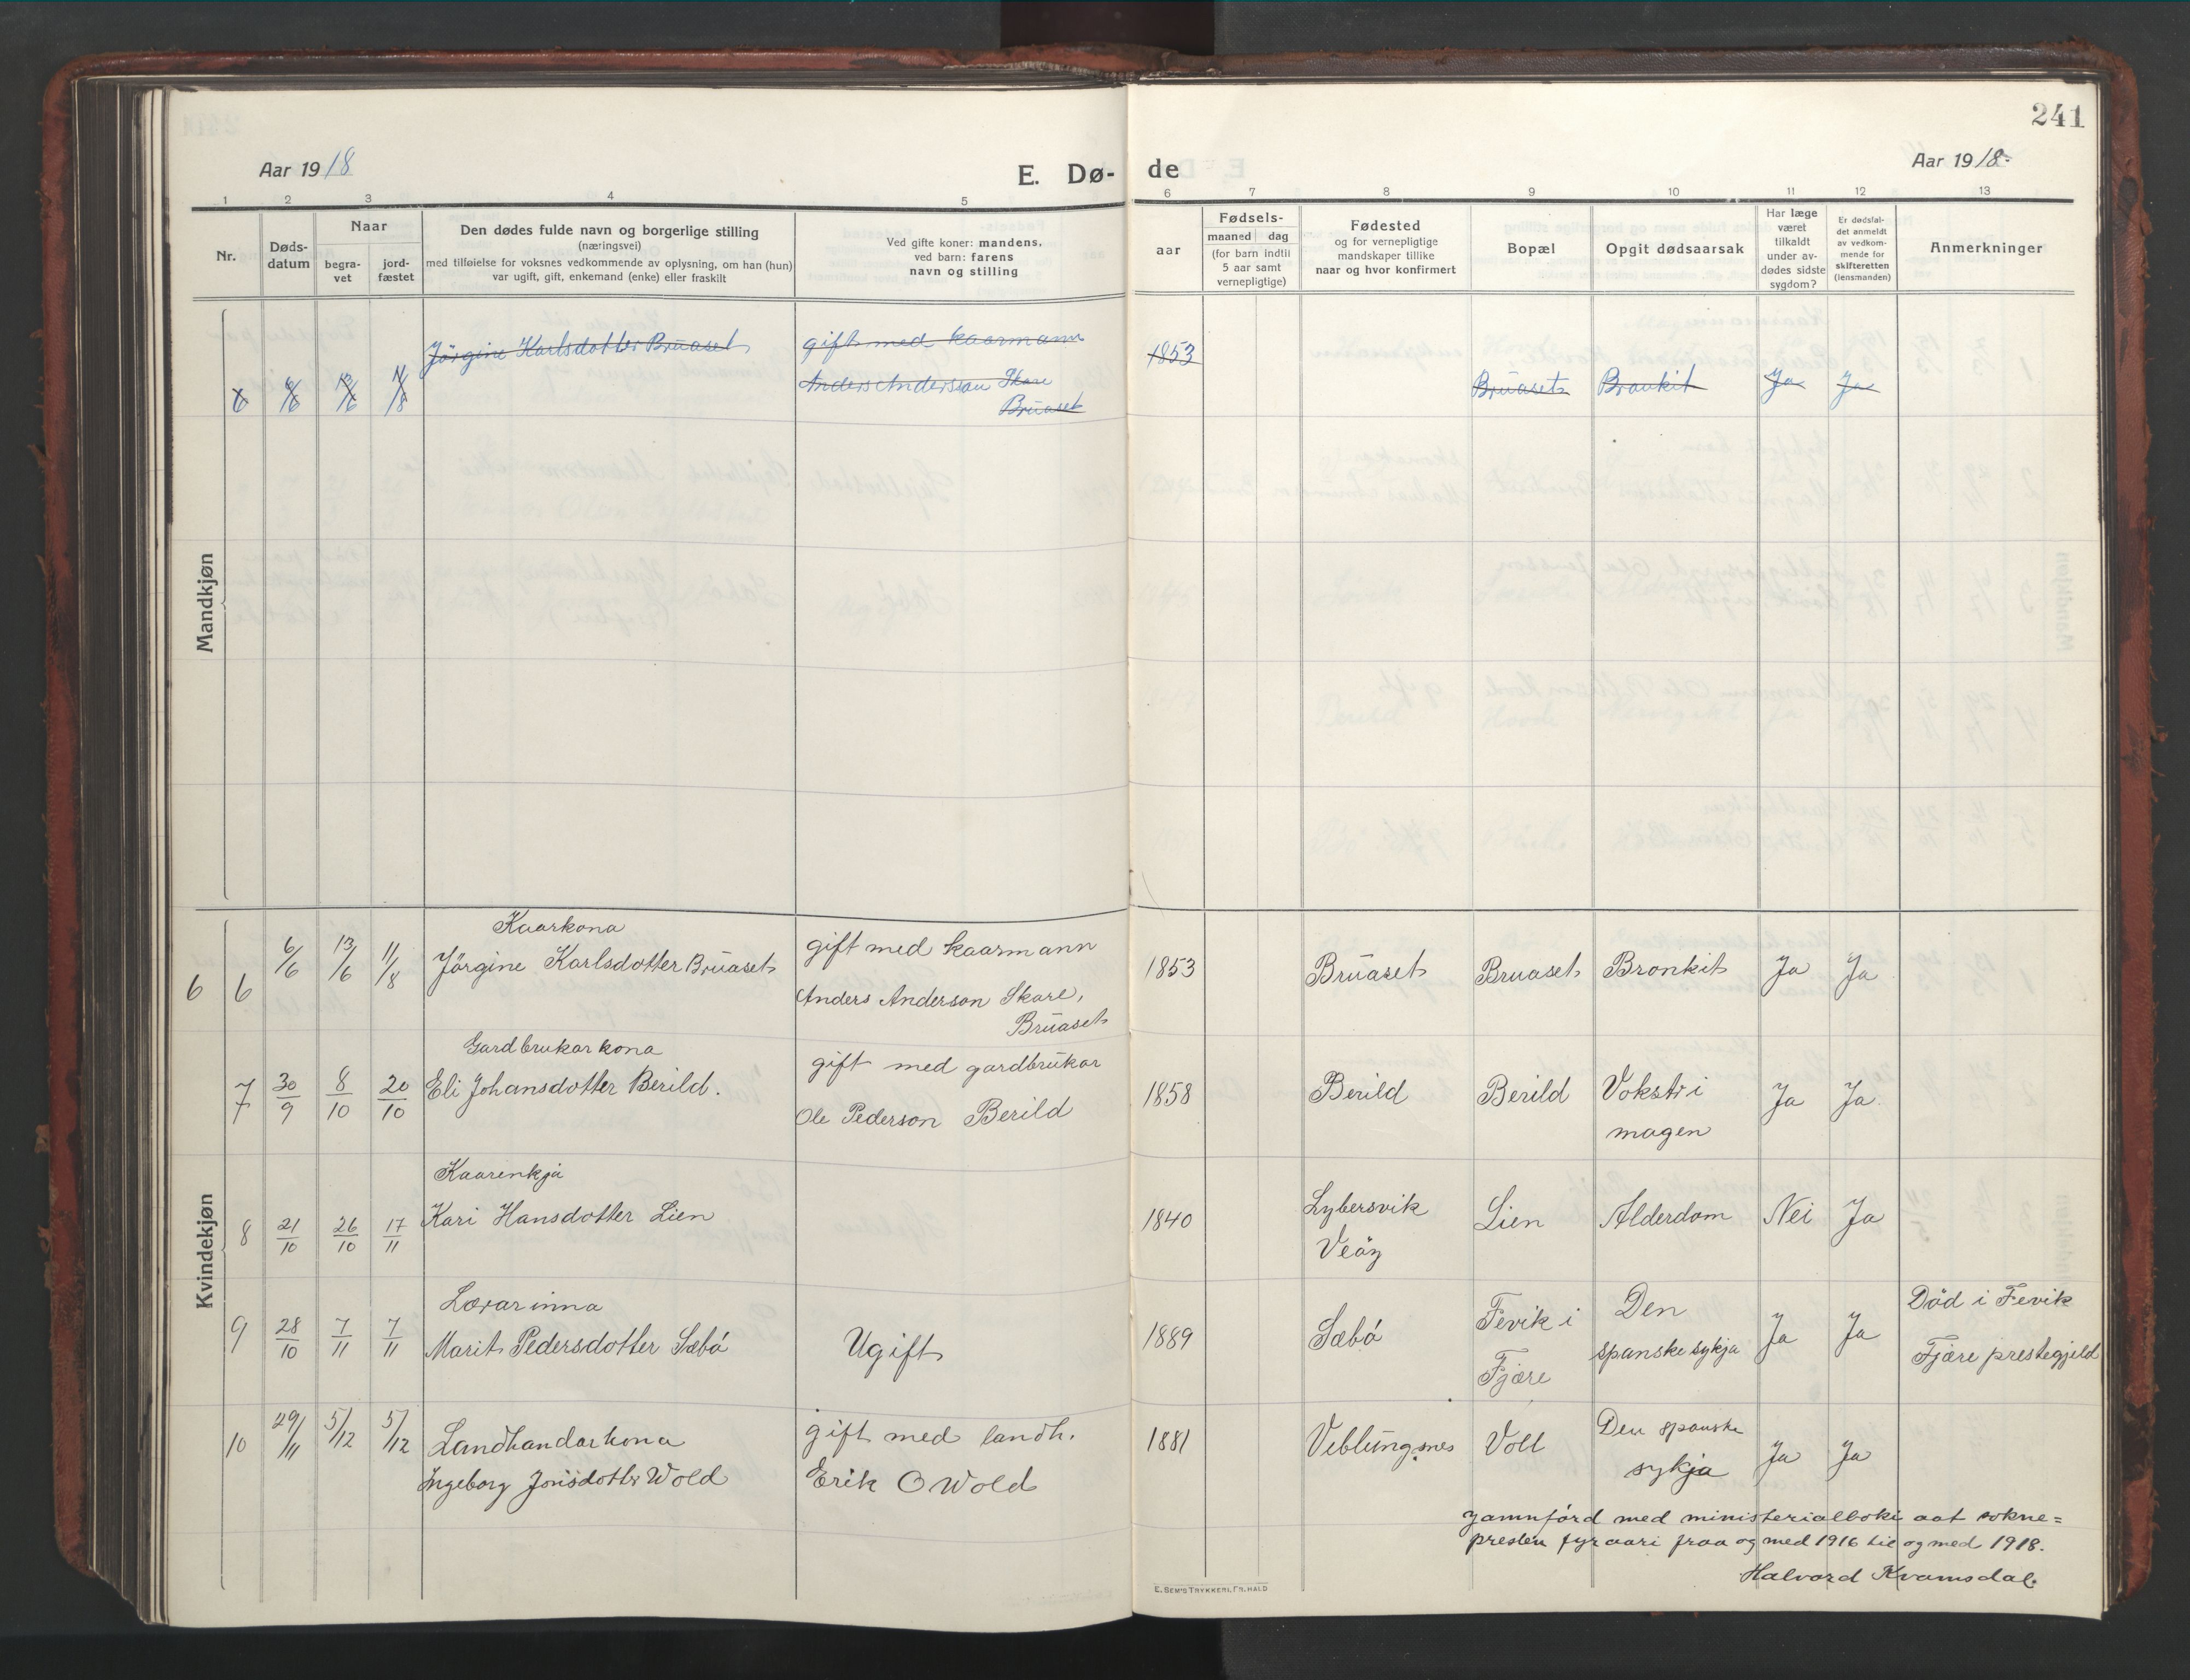 241
Aar 1918
E. Dø-
de
Aar 1918.
1 2 3 4 5 6 7 8 9 10 11 12 13
Nr.
Døds-
datum
Naar
begra-
vet
jord-
fæstet
Den dødes fulde navn og borgerlige stilling
(næringsvei)
med tilføielse for voksnes vedkommende av oplysning, om han (hun)
var ugift, gift, enkemand (enke) eller fraskilt
Ved gifte koner: mandens,
ved barn: farens
navn og stilling
aar
Fødsels-
maaned dag
(for barn indtil
5 aar samt
vernepligtige)
Fødested
og for vernepligtige
mandskaper tillike
naar og hvor konfirmert
Bopæl
Opgit dødsaarsak
Har læge
været
tilkaldt
under av-
dødes sidste
sygdom?
Er dødsfal-
det anmeldt
av vedkom-
mende for
skifteretten
(lensmanden)
Anmerkninger
Mandkjøn
6 6/6 13/6 11/8
Jörgine Karlsdotter Bruaset
gift med kaarmann
Anders Anderssen Skare
Bruaset
1853
Bruaset
Bronkit
Ja
Ja
Kvindekjøn
6 6 6/6 13/6 11/8
Kaarkona
Jörgine Karlsdotter Bruaset
gift med kaarmann
Anders Anderson Skare,
Bruaset
1853
Bruaset
Bruaset
Bronkit
Ja
Ja
7 30/9 8/10 20/10
Gardbrukarkona
Eli Johansdotter Berild.
gift med gardbrukar
Ole Pederson Berild
1858
Berild
Berild
Vokstr i
magen
Ja
Ja.
8 21/10 26/10 17/11
Kaarenkja
Kari Hansdotter Lien
1840
Lybersvik
Veöy
Lien
Alderdom
Nei
Ja
9 28/10 7/11 7/11
Lærarinna
Marit Pedersdotter Sæbö
Ugift
1889
Sæbö
Fevik i
Fjære
Den
spanske sykja
Ja
Ja
Död i Fevik
Fjære prestegjeld
10 29/11 5/12 5/12
Landhandarkona
Ingeborg Jonsdotter Wold
gift med landh.
Erik O Wold
1881
Veblungsnes
Voll
Den spanske
sykja
Ja
Ja
Jamnförd med ministerialboki aat sokne=
presten fyr aari fraa og med 1916 til og med 1918.
Halvord Kvamsdal.
E. SEM'S TRYKKERI, FR.HALD